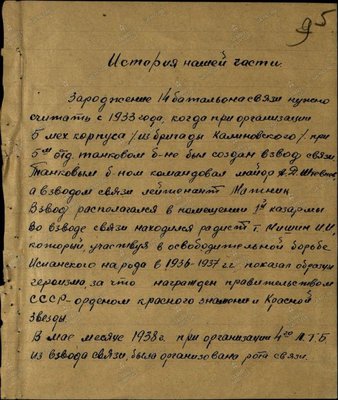 95
История нашей части.
Зарождение 14 батальона связи нужно
считать с 1933 года, когда при организации
5 мех корпуса /из бригады Калиновского/ при
5ом отд. танковом б-не был создан взвод связи
Танковым б-ном командовал майор
а взводом связи лейтенант
Взвод располагался в помещении 1й казармы
Во взводе связи находился радист т. Мишин И.И,
который, участвуя в освободительной борьбе
Испанского народа в 1936-1937 г.г показал образцы
героизма, за что награжден правительством
СССР-орденом красного знамени и Красной
Звезды.
В мае месяце 1938 г. при организации 4го Л.Т.Б.
из взвода связи, была организована рота связи.